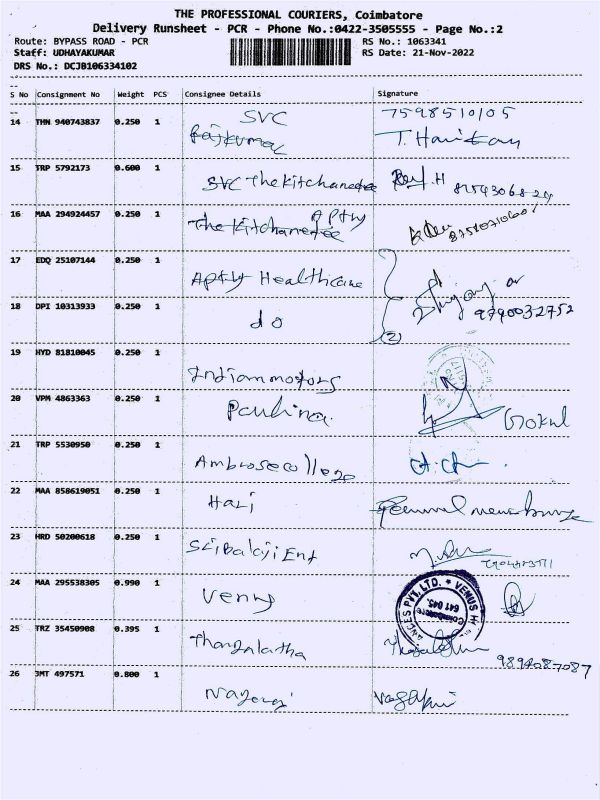 THE PROFESSIONAL COURIERS, Coimbatore
Delivery Runsheet - PCR - Phone No.:0422-3505555 - Page No.:2
Route: BYPASS ROAD - PCR
Staff: UDHAYAKUMAR
DRS No.: DCJB106334102
RS No.: 1063341
RS Date: 21-Nov-2022
S No Consignment No Weight PCS Consignee Details Signature
14 TMN 940743837 0.250 1 SVC Rajkumar 7598510105
15 TRP 5792173 0.600 1 SVC The Kitchanette
16 MAA 294924457 0.250 1 The Kitchanette
17 EDQ 25107144 0.250 1 Apty Healthcare
18 DPI 10313933 0.250 1 do (2) 9790032752
19 HYD 81810045 0.250 1 Indianmotors
20 VPM 4863363 0.250 1 Paulina Gokul
21 TRP 5530950 0.250 1 Ambrose college
22 MAA 858619051 0.250 1 Hari
23 HRD 50200618 0.250 1 Sribalaji Ent
24 MAA 295538305 0.990 1 Venus
ANCES PVT. LTD. * VENUS H
Coimbatore
641 045.
25 TRZ 35450908 0.395 1 Thangalatha 9894087087
26 JMT 497571 0.800 1 Nagaraj